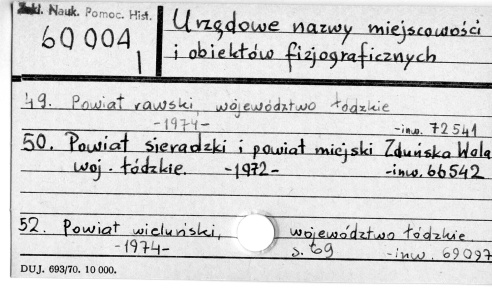 Zakł. Nauk. Pomoc. Hist.
60 004
I
Urzędowe nazwy miejscowości
i obiektów fizjograficznych
49. Powiat rawski, województwo łódzkie
-1974- -inw. 72541
50. Powiat sieradzki i powiat miejski Zduńska Wola
woj. łódzkie. -1972- -inw. 66542
52. Powiat wieluński, województwo łódzkie
-1974- s. 69 -inw. 69097
DUJ. 693/70. 10 000.